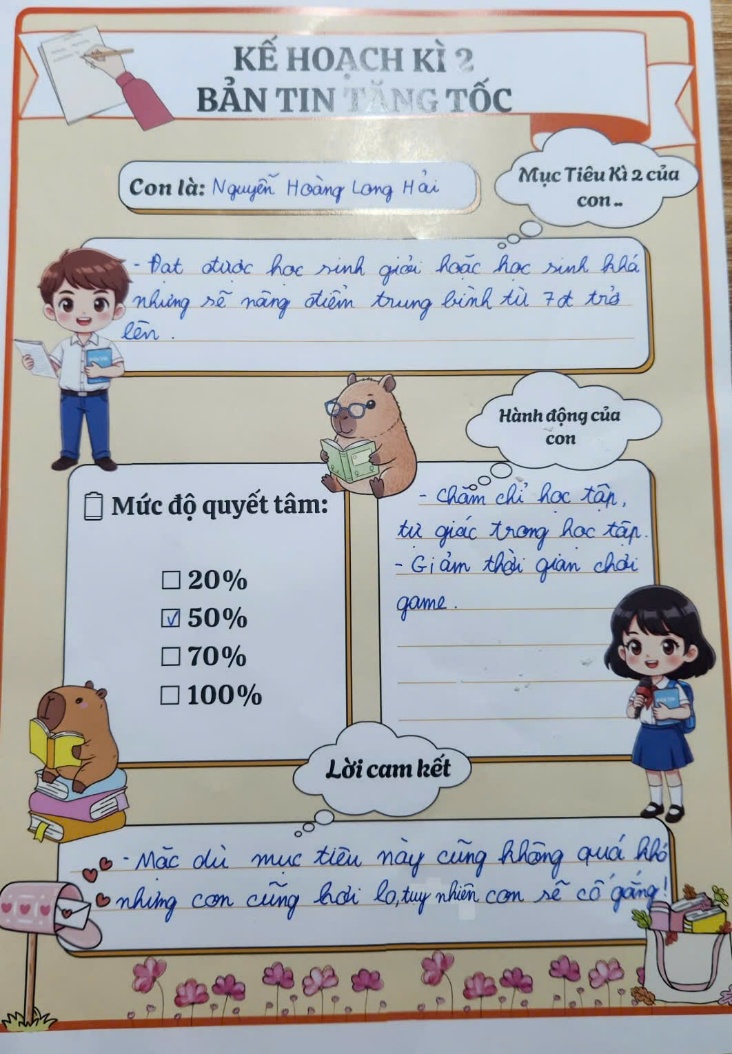 KẾ HOẠCH KÌ 2
BẢN TIN TĂNG TỐC
Con là: Nguyễn Hoàng Long Hải
Mục Tiêu Kì 2 của
con..
- Đạt được học sinh giỏi hoặc học sinh khá
nhưng sẽ nâng điểm trung bình từ 7đ trở
lên.
Mức độ quyết tâm:
20%
50%
70%
100%
Hành động của
con
- Chăm chỉ học tập,
tự giác trong học tập.
- Giảm thời gian chơi
game.
Lời cam kết
- Mặc dù mục tiêu này cũng không quá khó
nhưng con cũng hơi lo, tuy nhiên con sẽ cố gắng!